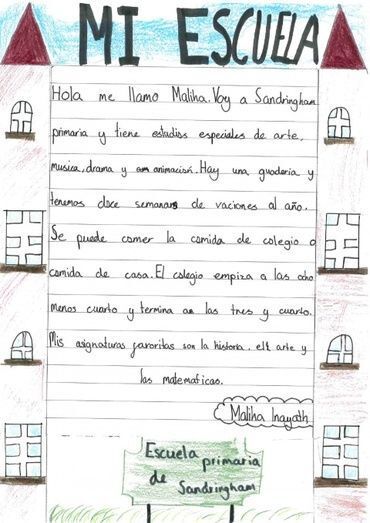 MI ESCUELA
Hola me llamo Maliha. Voy a Sandringham
primaria y tiene estudios especiales de arte,
musica, drama y animacion. Hay una guaderia y
tenemos doce semanas de vaciones al año.
Se puede comer la comida de colegio o
comida de casa. El colegio empiza a las ocho
menos cuarto y termina a las tres y cuarto.
Mis asignaturas favoritas son la historia, elt arte y
las matematicas.
Maliha Inayath
Escuela
primaria
de Sandringham